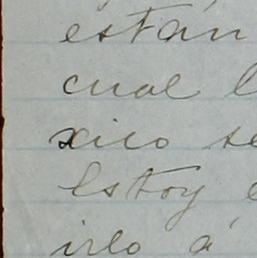 están
cual l
xico se
Estoy e
irlo á